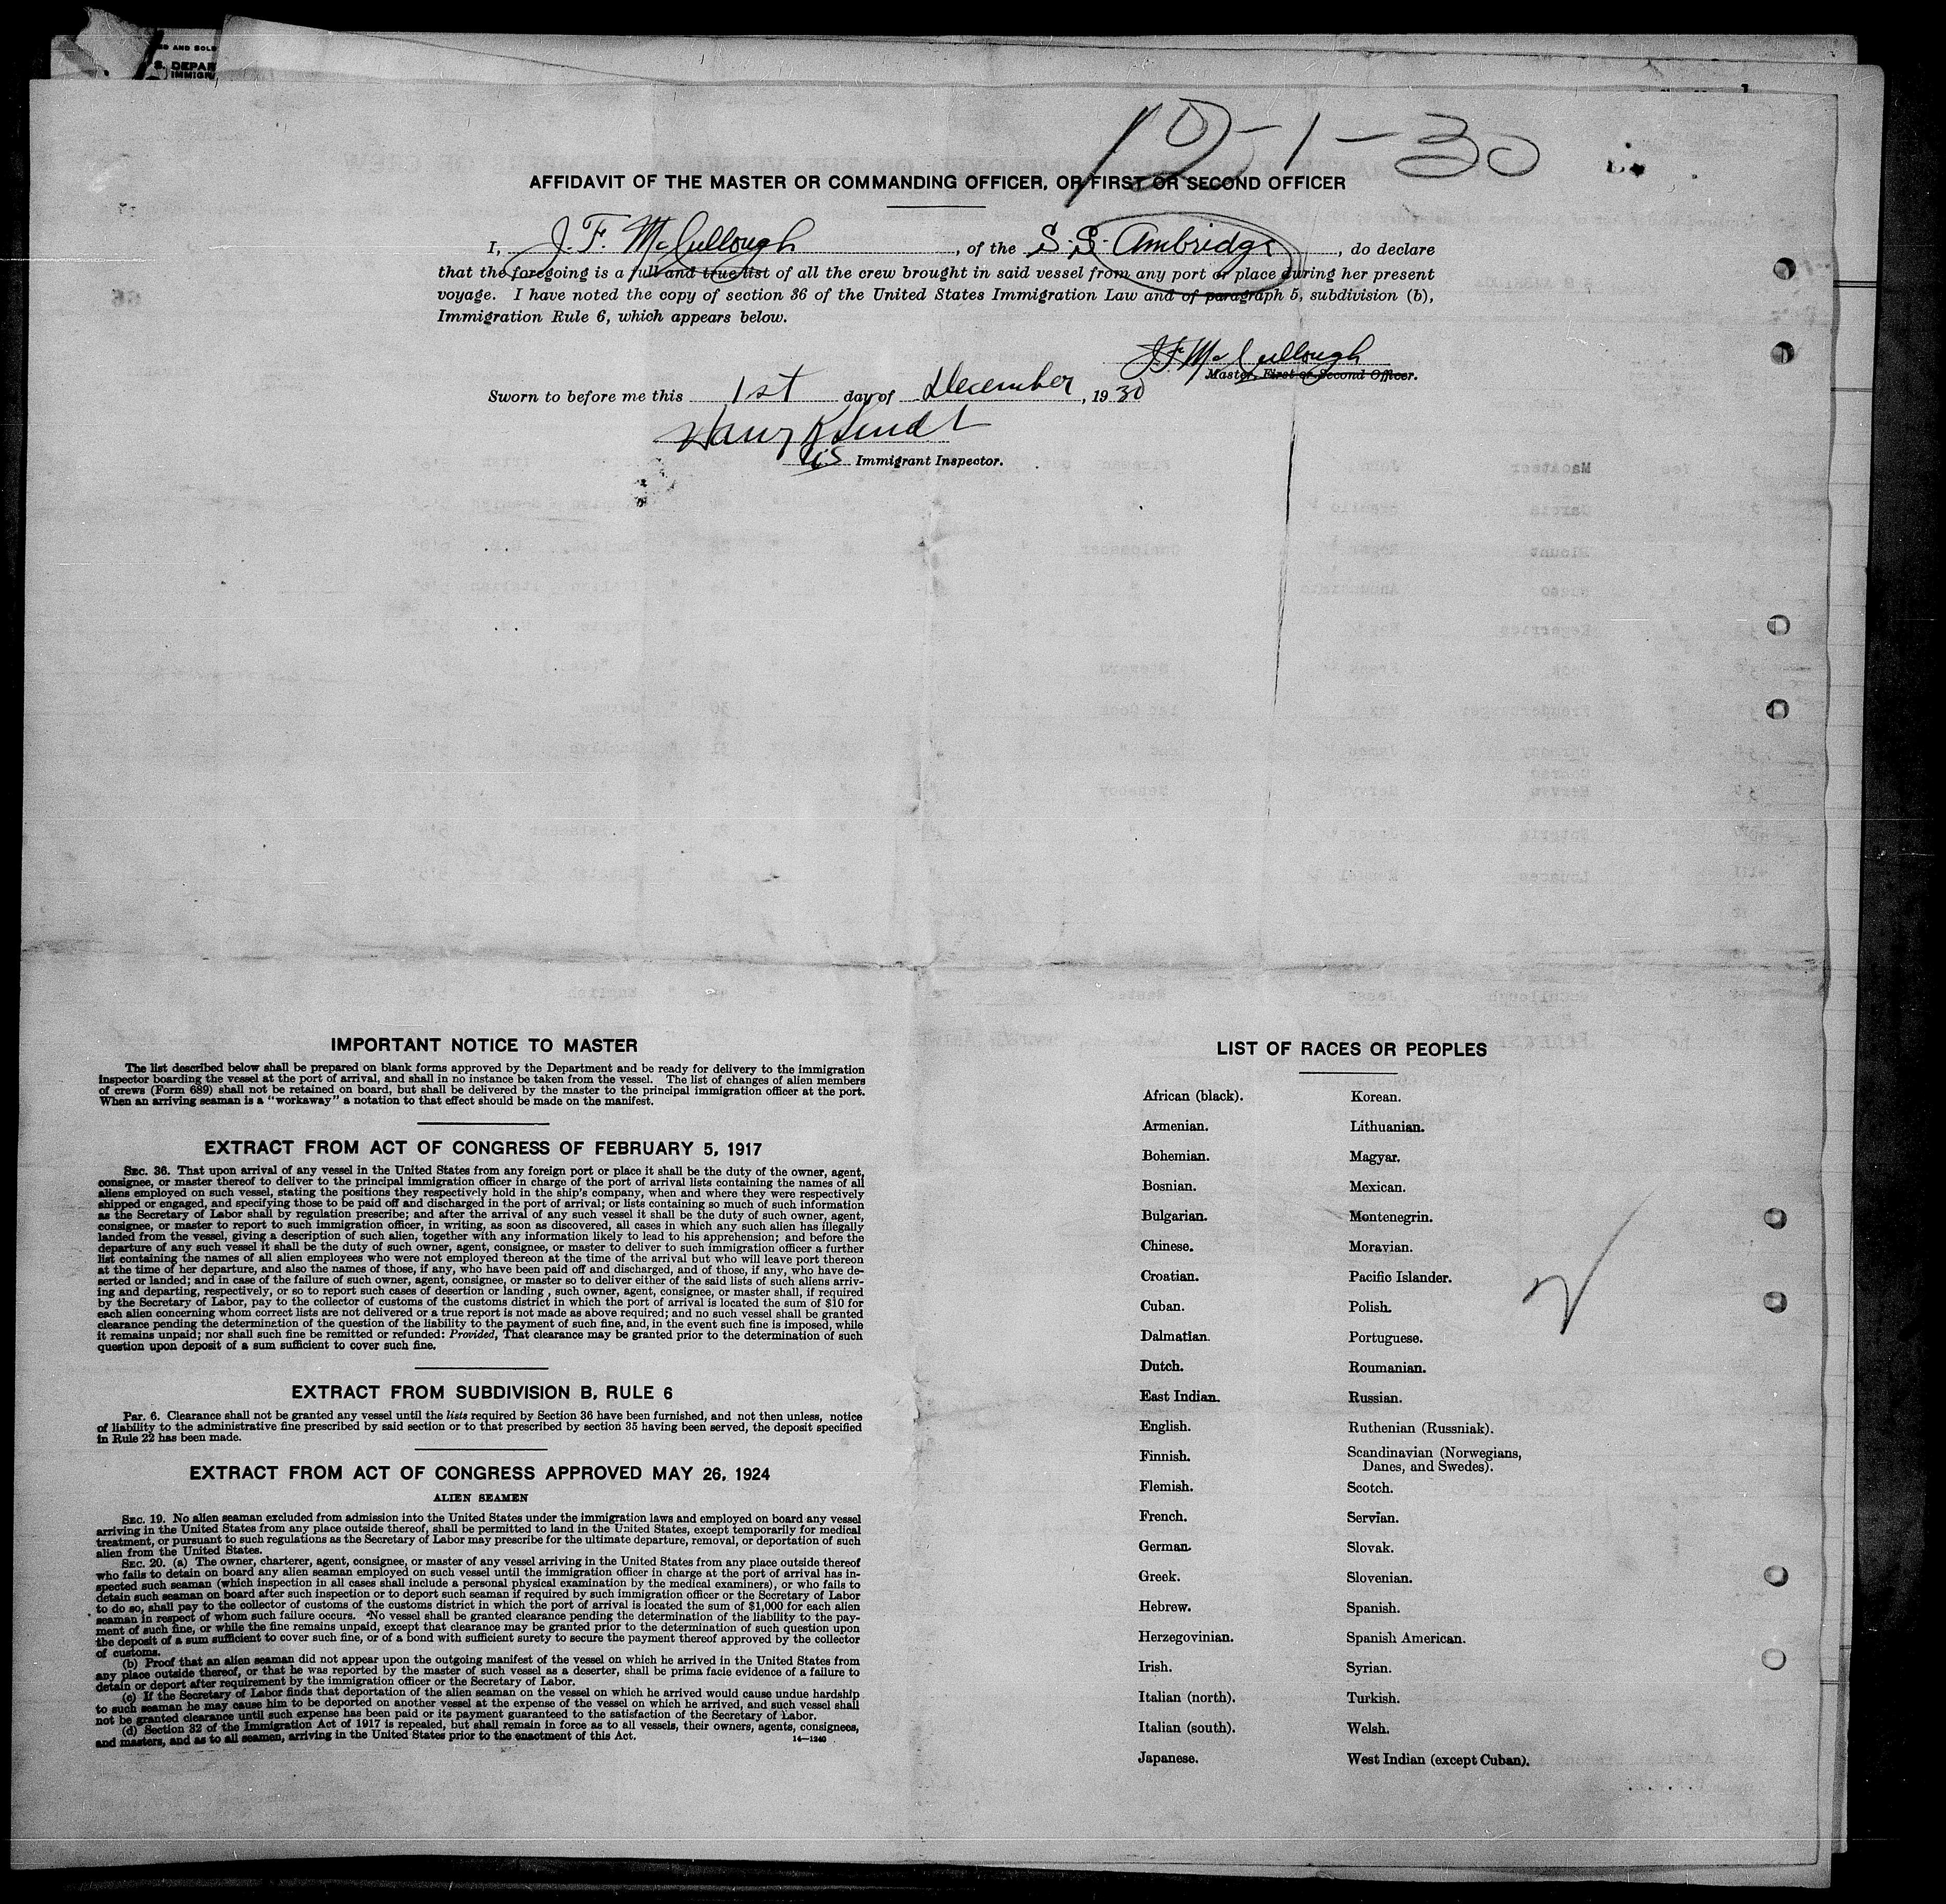 S. DEPAR
IMMIGR
12-1-30
AFFIDAVIT OF THE MASTER OR COMMANDING OFFICER, OR FIRST OR SECOND OFFICER
I, J. F. McCullough, of the S.S. Ambridge, do declare
that the foregoing is a full and true list of all the crew brought in said vessel from any port or place during her present
voyage. I have noted the copy of section 36 of the United States Immigration Law and of paragraph 5, subdivision (b),
Immigration Rule 6, which appears below.
J F McCullough
Master, First or Second Officer.
Sworn to before me this 1st day of December, 1930
Harry
US Immigrant Inspector.
IMPORTANT NOTICE TO MASTER
The list described below shall be prepared on blank forms approved by the Department and be ready for delivery to the immigration
inspector boarding the vessel at the port of arrival, and shall in no instance be taken from the vessel. The list of changes of alien members
of crews (Form 689) shall not be retained on board, but shall be delivered by the master to the principal immigration officer at the port.
When an arriving seaman is a "workaway" a notation to that effect should be made on the manifest.
EXTRACT FROM ACT OF CONGRESS OF FEBRUARY 5, 1917
SEC. 36. That upon arrival of any vessel in the United States from any foreign port or place it shall be the duty of the owner, agent,
consignee, or master thereof to deliver to the principal immigration officer in charge of the port of arrival lists containing the names of all
aliens employed on such vessel, stating the positions they respectively hold in the ship's company, when and where they were respectively
shipped or engaged, and specifying those to be paid off and discharged in the port of arrival; or lists containing so much of such information
as the Secretary of Labor shall by regulation prescribe; and after the arrival of any such vessel it shall be the duty of such owner, agent,
consignee, or master to report to such immigration officer, in writing, as soon as discovered, all cases in which any such alien has illegally
landed from the vessel, giving a description of such alien, together with any information likely to lead to his apprehension; and before the
departure of any such vessel it shall be the duty of such owner, agent, consignee, or master to deliver to such immigration officer a further
list containing the names of all alien employees who were not employed thereon at the time of the arrival but who will leave port thereon
at the time of her departure, and also the names of those, if any, who have been paid off and discharged, and of those, if any, who have de-
serted or landed; and in case of the failure of such owner, agent, consignee, or master so to deliver either of the said lists of such aliens arriv-
ing and departing, respectively, or so to report such cases of desertion or landing , such owner, agent, consignee, or master shall, if required
by the Secretary of Labor, pay to the collector of customs of the customs district in which the port of arrival is located the sum of $10 for
each alien concerning whom correct lists are not delivered or a true report is not made as above required; and no such vessel shall be granted
clearance pending the determination of the question of the liability to the payment of such fine, and, in the event such fine is imposed, while
it remains unpaid; nor shall such fine be remitted or refunded: Provided, That clearance may be granted prior to the determination of such
question upon deposit of a sum sufficient to cover such fine.
EXTRACT FROM SUBDIVISION B, RULE 6
Par. 6. Clearance shall not be granted any vessel until the lists required by Section 36 have been furnished, and not then unless, notice
of liability to the administrative fine prescribed by said section or to that prescribed by section 35 having been served, the deposit specified
in Rule 22 has been made.
EXTRACT FROM ACT OF CONGRESS APPROVED MAY 26, 1924
ALIEN SEAMEN
SEC. 19. No alien seaman excluded from admission into the United States under the immigration laws and employed on board any vessel
arriving in the United States from any place outside thereof, shall be permitted to land in the United States, except temporarily for medical
treatment, or pursuant to such regulations as the Secretary of Labor may prescribe for the ultimate departure, removal, or deportation of such
alien from the United States.
SEC. 20. (a) The owner, charterer, agent, consignee, or master of any vessel arriving in the United States from any place outside thereof
who fails to detain on board any alien seaman employed on such vessel until the immigration officer in charge at the port of arrival has in-
spected such seaman (which inspection in all cases shall include a personal physical examination by the medical examiners), or who fails to
detain such seaman on board after such inspection or to deport such seaman if required by such immigration officer or the Secretary of Labor
to do so, shall pay to the collector of customs of the customs district in which the port of arrival is located the sum of $1,000 for each alien
seaman in respect of whom such failure occurs. No vessel shall be granted clearance pending the determination of the liability to the pay-
ment of such fine, or while the fine remains unpaid, except that clearance may be granted prior to the determination of such question upon
the deposit of a sum sufficient to cover such fine, or of a bond with sufficient surety to secure the payment thereof approved by the collector
of customs.
(b) Proof that an alien seaman did not appear upon the outgoing manifest of the vessel on which he arrived in the United States from
any place outside thereof, or that he was reported by the master of such vessel as a deserter, shall be prima facie evidence of a failure to
detain or deport after requirement by the immigration officer or the Secretary of Labor.
(c) If the Secretary of Labor finds that deportation of the alien seaman on the vessel on which he arrived would cause undue hardship
to such seaman he may cause him to be deported on another vessel at the expense of the vessel on which he arrived, and such vessel shall
not be granted clearance until such expense has been paid or its payment guaranteed to the satisfaction of the Secretary of Labor.
(d) Section 32 of the Immigration Act of 1917 is repealed, but shall remain in force as to all vessels, their owners, agents, consignees,
and masters, and as to all seamen, arriving in the United States prior to the enactment of this Act.
14—1240
LIST OF RACES OR PEOPLES
African (black).
Armenian.
Bohemian.
Bosnian.
Bulgarian.
Chinese.
Croatian.
Cuban.
Dalmatian.
Dutch.
East Indian.
English.
Finnish.
Flemish.
French.
German.
Greek.
Hebrew.
Herzegovinian.
Irish.
Italian (north).
Italian (south).
Japanese.
Korean.
Lithuanian.
Magyar.
Mexican.
Montenegrin.
Moravian.
Pacific Islander.
Polish.
Portuguese.
Roumanian.
Russian.
Ruthenian (Russniak).
Scandinavian (Norwegians,
Danes, and Swedes).
Scotch.
Servian.
Slovak.
Slovenian.
Spanish.
Spanish American.
Syrian.
Turkish.
Welsh.
West Indian (except Cuban).